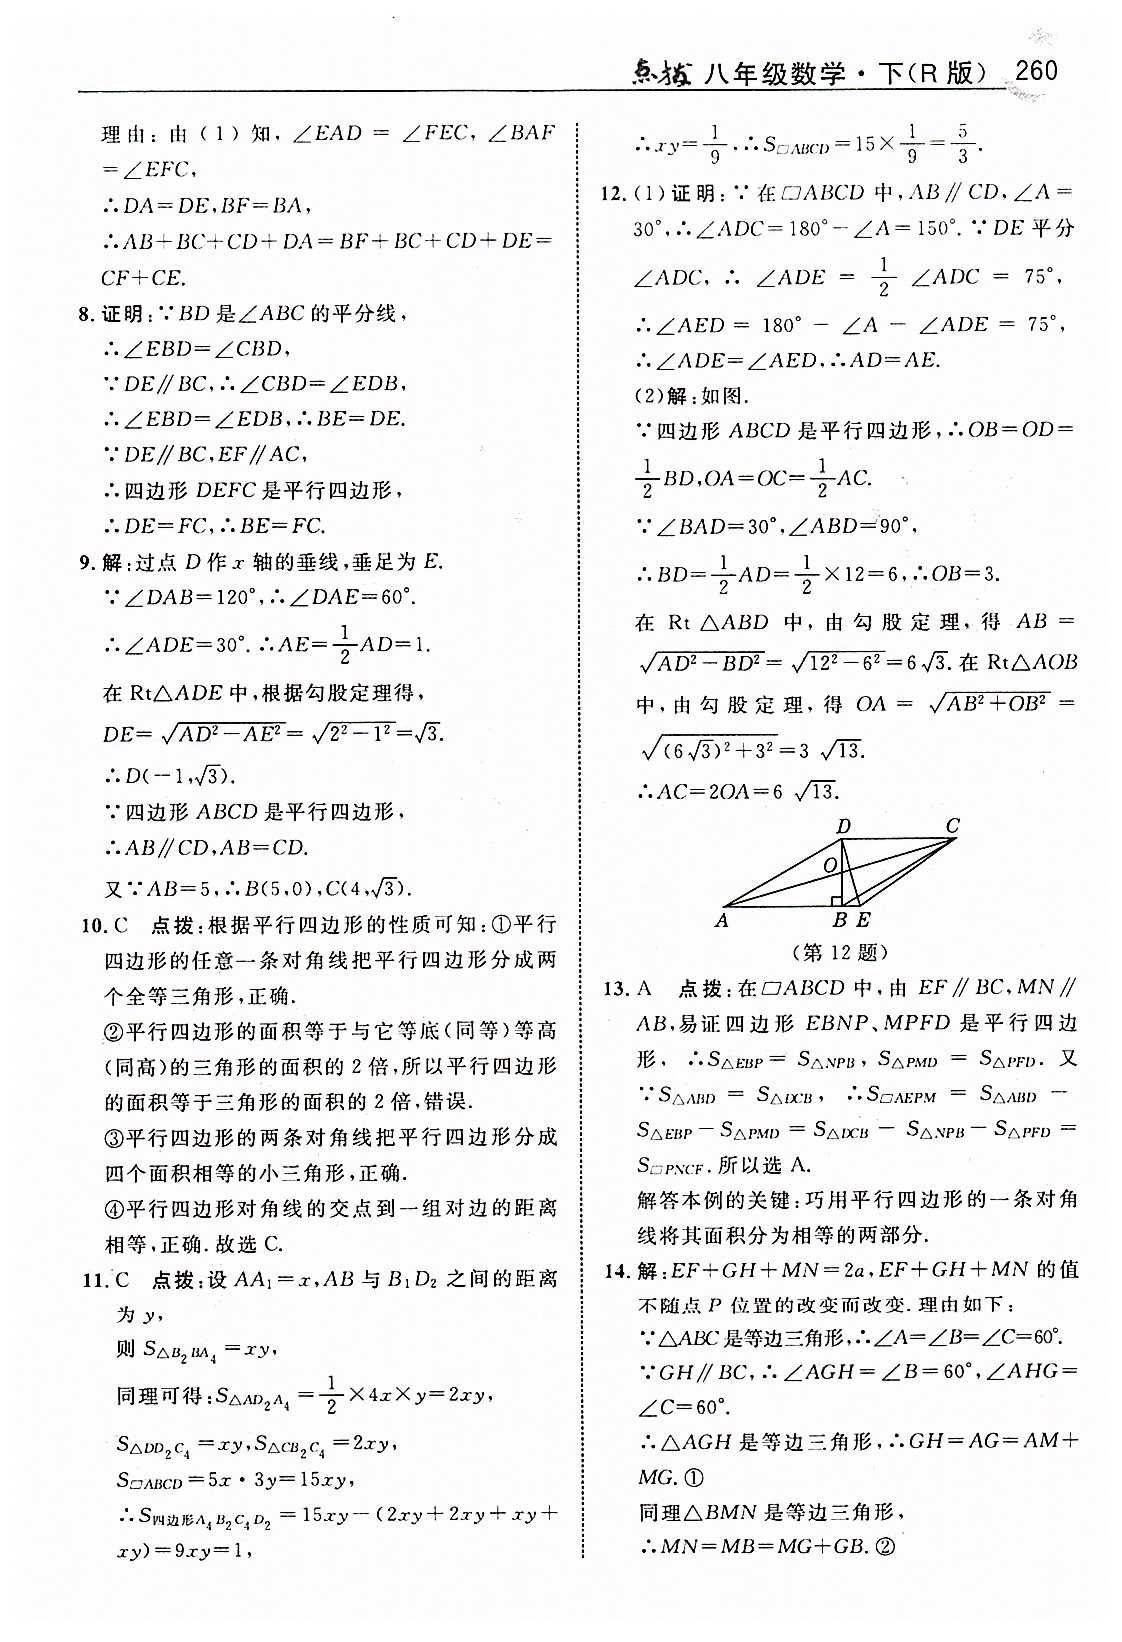 点拨 八年级数学·下(R版) 260
理由:由(1)知,∠EAD = ∠FEC, ∠BAF
=∠EFC,
∴DA=DE,BF=BA,
∴AB+BC+CD+DA=BF+BC+CD+DE=
CF+CE.
8.证明:∵BD是∠ABC的平分线,
∴∠EBD=∠CBD,
∵DE∥BC,∴∠CBD=∠EDB,
∴∠EBD=∠EDB,∴BE=DE.
∵DE∥BC,EF∥AC,
∴四边形DEFC是平行四边形,
∴DE=FC,∴BE=FC.
9.解:过点D作x轴的垂线,垂足为E.
∵∠DAB=120°,∴∠DAE=60°.
∴∠ADE=30°.∴AE=1/2AD=1.
在Rt△ADE中,根据勾股定理得,
DE=√(AD²-AE²)=√(2²-1²)=√3.
∴D(-1,√3).
∵四边形ABCD是平行四边形,
∴AB∥CD,AB=CD.
又∵AB=5,∴B(5,0),C(4,√3).
10.C 点拨:根据平行四边形的性质可知:①平行
四边形的任意一条对角线把平行四边形分成两
个全等三角形,正确.
②平行四边形的面积等于与它等底(同等)等高
(同高)的三角形的面积的2倍,所以平行四边形
的面积等于三角形的面积的2倍,错误.
③平行四边形的两条对角线把平行四边形分成
四个面积相等的小三角形,正确.
④平行四边形对角线的交点到一组对边的距离
相等,正确.故选C.
11.C 点拨:设AA₁=x,AB与B₁D₂之间的距离
为y,
则S△B₂BA₄=xy,
同理可得:S△AD₂A₄=1/2×4x×y=2xy,
S△DD₂C₄=xy,S△CB₂C₄=2xy,
S▱ABCD=5x·3y=15xy,
∴S四边形A₄B₂C₄D₂=15xy-(2xy+2xy+xy+
xy)=9xy=1,
∴xy=1/9.∴S▱ABCD=15×1/9=5/3.
12.(1)证明:∵在▱ABCD中,AB∥CD,∠A=
30°,∴∠ADC=180°-∠A=150°.∵DE平分
∠ADC, ∴ ∠ADE = 1/2 ∠ADC = 75°,
∴∠AED = 180° - ∠A - ∠ADE = 75°,
∴∠ADE=∠AED,∴AD=AE.
(2)解:如图.
∵四边形ABCD是平行四边形,∴OB=OD=
1/2BD,OA=OC=1/2AC.
∵∠BAD=30°,∠ABD=90°,
∴BD=1/2AD=1/2×12=6,∴OB=3.
在Rt△ABD中,由勾股定理,得AB=
√(AD²-BD²)=√(12²-6²)=6√3.在Rt△AOB
中,由勾股定理,得OA=√(AB²+OB²)=
√((6√3)²+3²)=3√13.
∴AC=2OA=6√13.
D C
O
A B E
(第12题)
13.A 点拨:在▱ABCD中,由EF∥BC,MN∥
AB,易证四边形EBNP、MPFD是平行四边
形, ∴S△EBP = S△NPB, S△PMD = S△PFD. 又
∵S△ABD = S△DCB, ∴S▱AEPM = S△ABD -
S△EBP-S△PMD=S△DCB-S△NPB-S△PFD=
S▱PNCF.所以选A.
解答本例的关键:巧用平行四边形的一条对角
线将其面积分为相等的两部分.
14.解:EF+GH+MN=2a,EF+GH+MN的值
不随点P位置的改变而改变.理由如下:
∵△ABC是等边三角形,∴∠A=∠B=∠C=60°.
∵GH∥BC,∴∠AGH=∠B=60°,∠AHG=
∠C=60°.
∴△AGH是等边三角形,∴GH=AG=AM+
MG.①
同理△BMN是等边三角形,
∴MN=MB=MG+GB.②